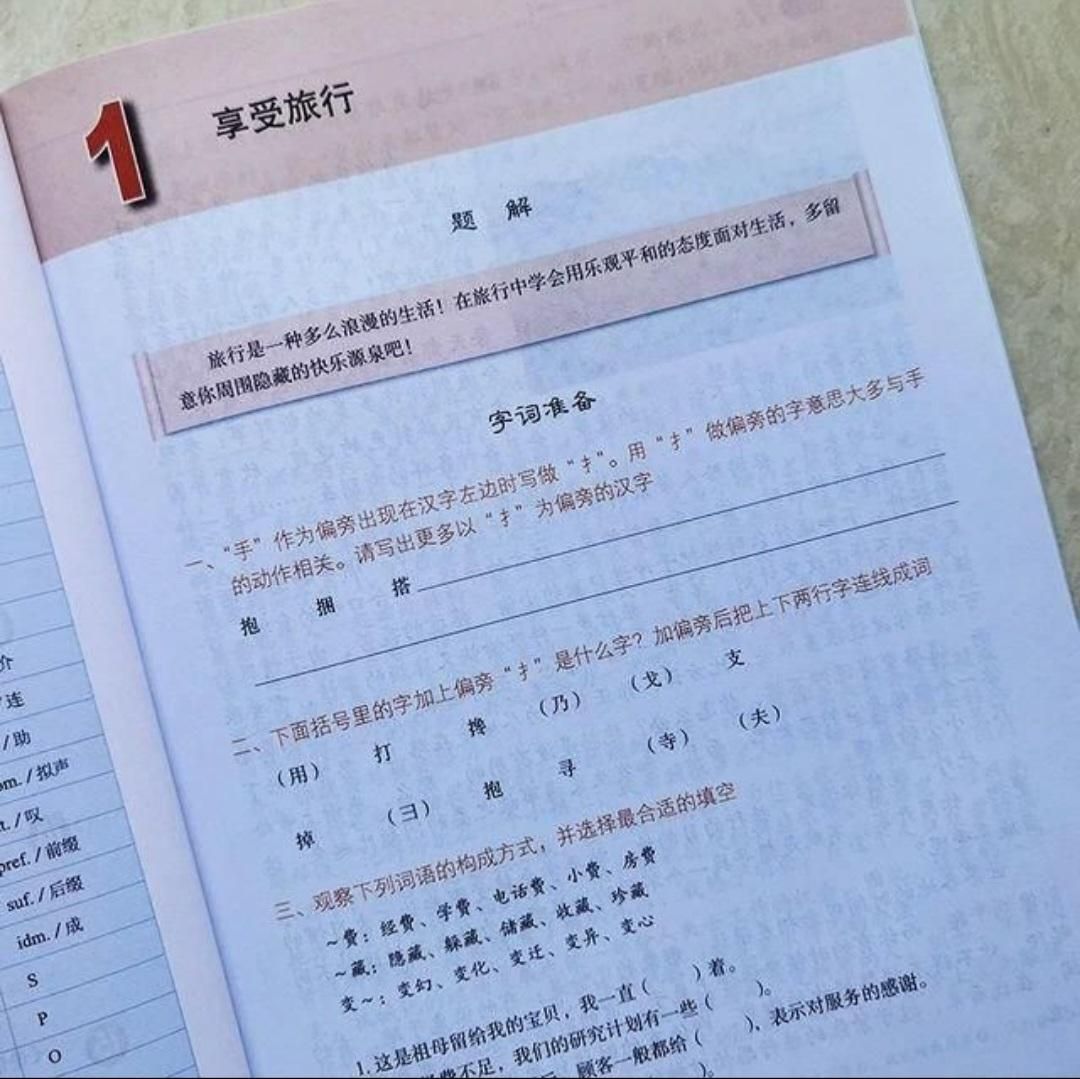 1
享受旅行
题 解
旅行是一种多么浪漫的生活！在旅行中学会用乐观平和的态度面对生活，多留
意你周围隐藏的快乐源泉吧！
字词准备
一、“手”作为偏旁出现在汉字左边时写做“扌”。用“扌”做偏旁的字意思大多与手
的动作相关。请写出更多以“扌”为偏旁的汉字
抱 捆 搭
二、下面括号里的字加上偏旁“扌”是什么字？加偏旁后把上下两行字连线成词
（用） 打 搀 （乃） （戈） 支
掉 （彐） 抱 寻 （寺） （夫）
三、观察下列词语的构成方式，并选择最合适的填空
～费：经费、学费、电话费、小费、房费
～藏：隐藏、躲藏、储藏、收藏、珍藏
变～：变幻、变化、变迁、变异、变心
1. 这是祖母留给我的宝贝，我一直（ ）着。
费不足，我们的研究计划有一些（ ）。
顾客一般都给（ ），表示对服务的感谢。
）。
介
/连
/助
om. /拟声
t. /叹
pref. /前缀
suf. /后缀
idm. /成
S
P
O